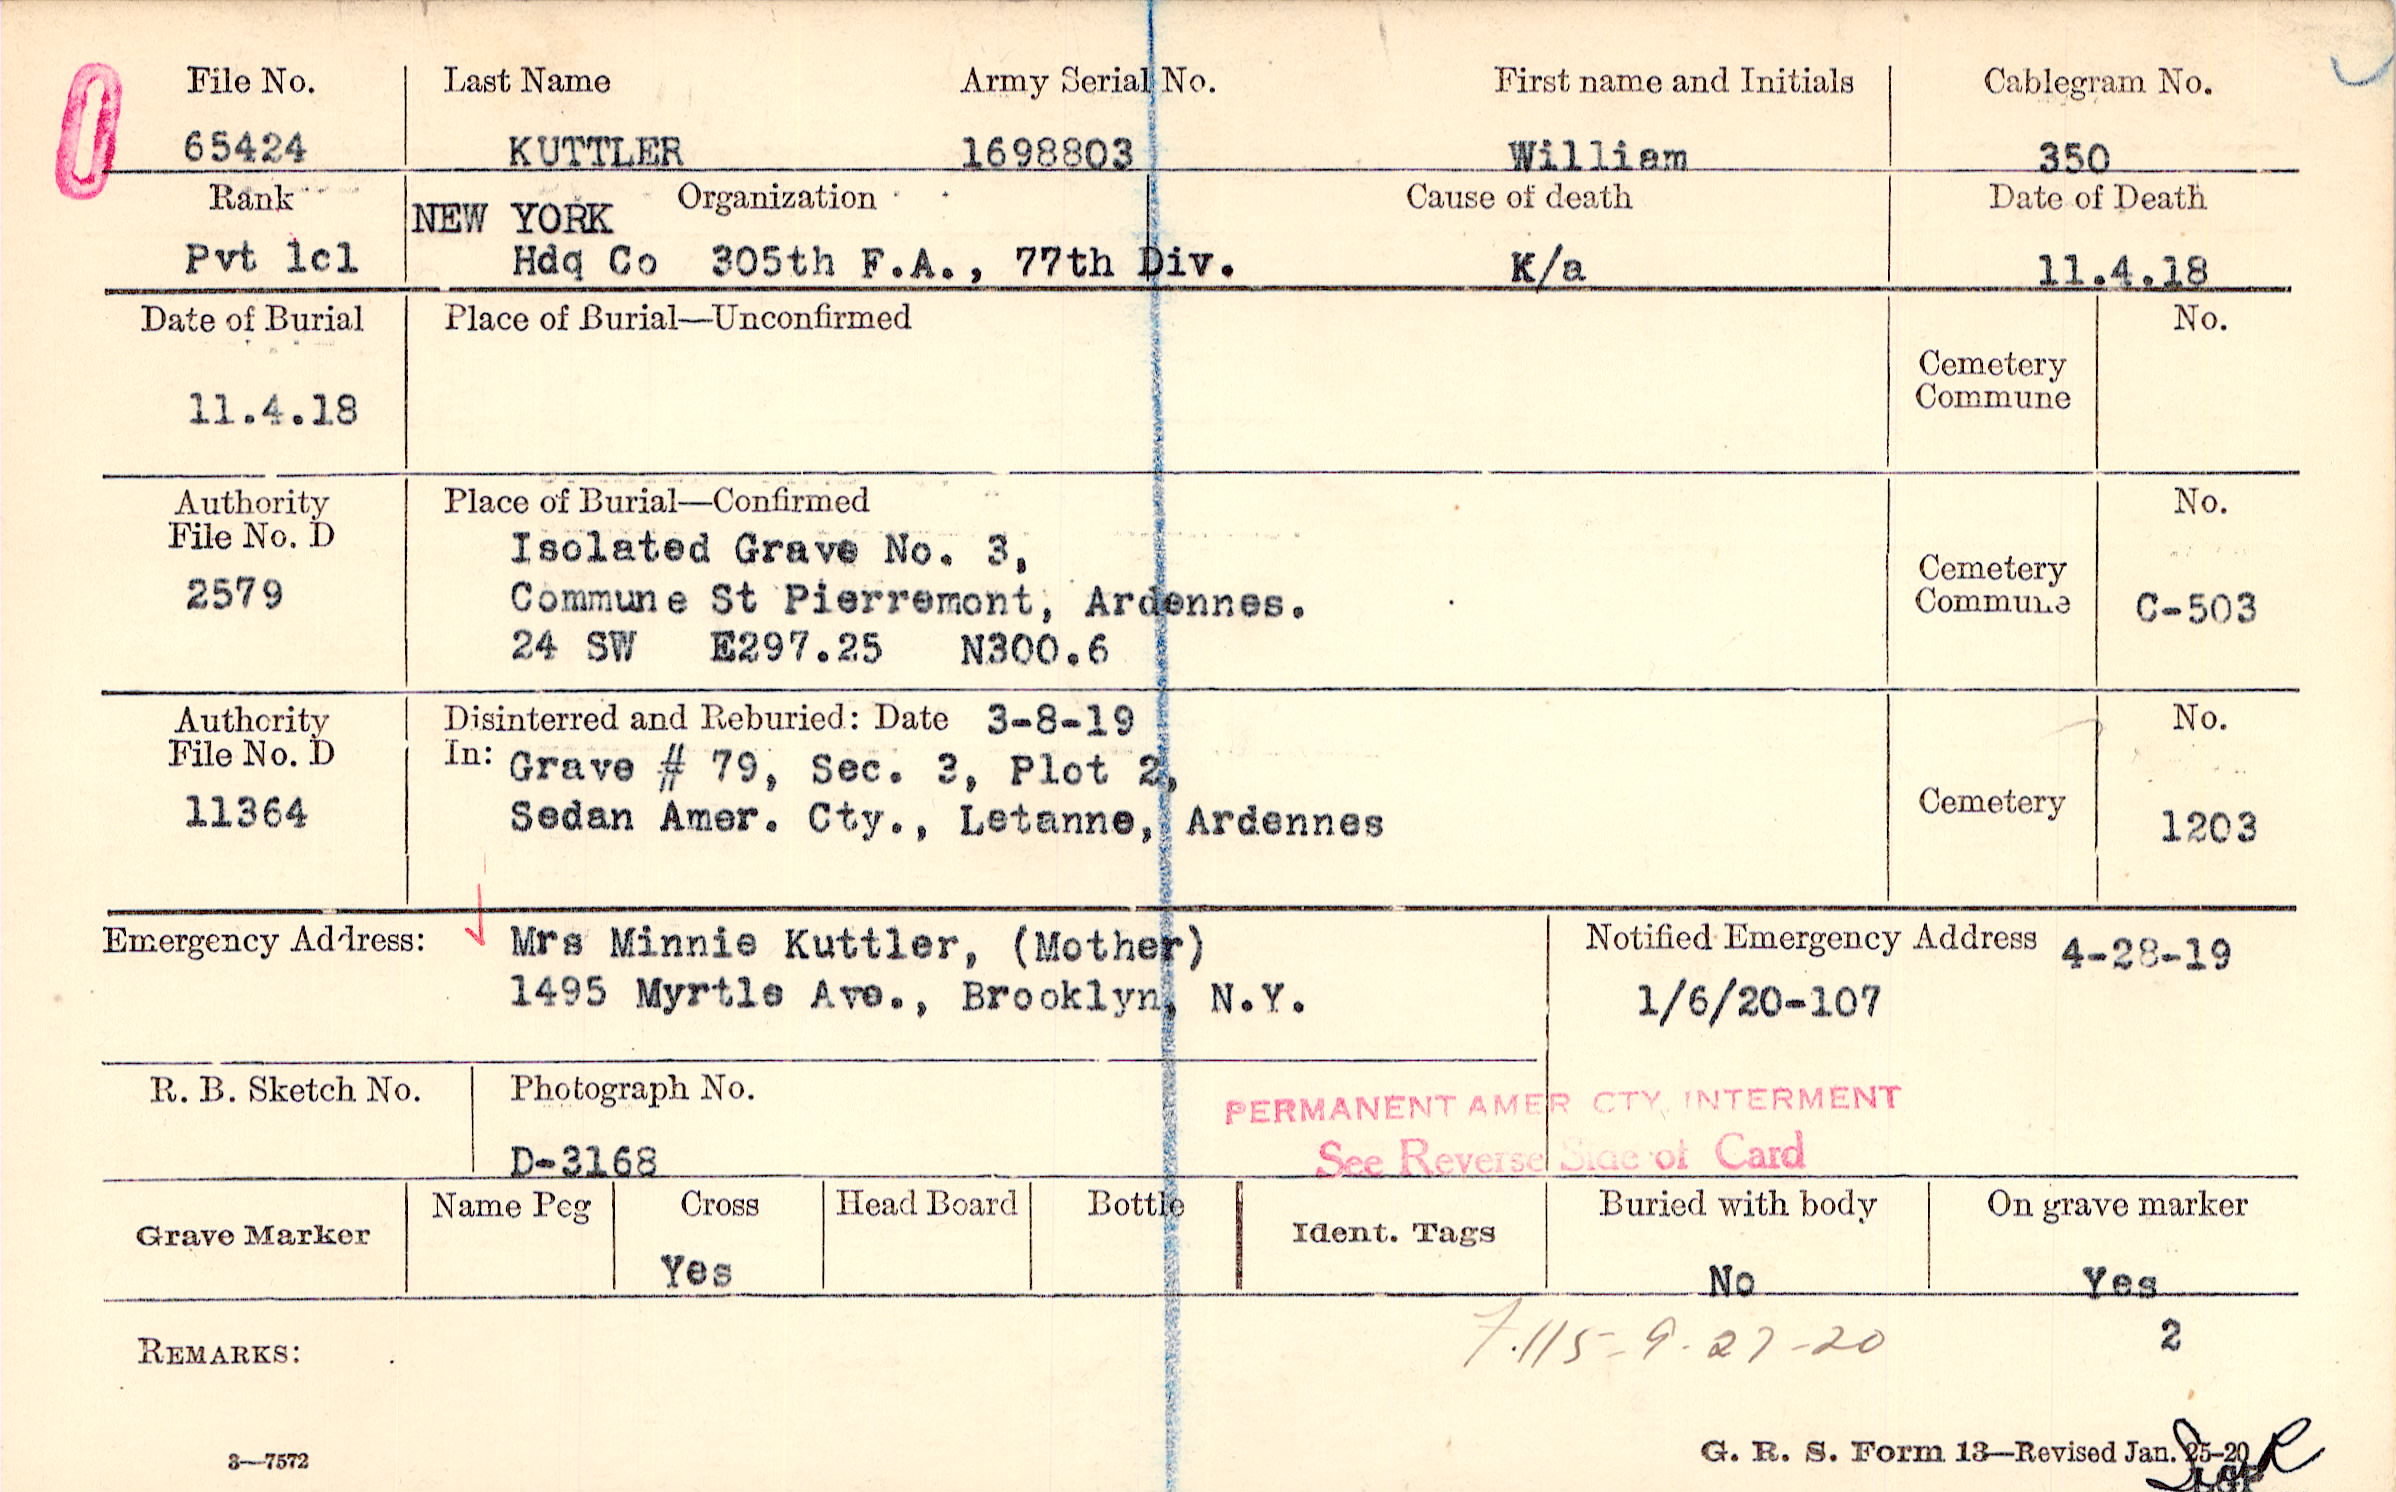 File No. Last Name Army Serial No. First name and Initials Cablegram No.
65424 KUTTLER 1698803 William 350
Rank NEW YORK Organization Cause of death Date of Death
Pvt 1cl Hdq Co 305th F.A., 77th Div. K/a 11.4.18
Date of Burial Place of Burial—Unconfirmed No.
Cemetery
Commune
11.4.18
Authority Place of Burial—Confirmed No.
File No. D Isolated Grave No. 3,
2579 Commune St Pierremont, Ardennes. Cemetery
Commune C-503
24 SW E297.25 N300.6
Authority Disinterred and Reburied: Date 3-8-19 No.
File No. D In: Grave # 79, Sec. 3, Plot 2,
11364 Sedan Amer. Cty., Letanne, Ardennes Cemetery 1203
Emergency Address: Mrs Minnie Kuttler, (Mother) Notified Emergency Address 4-28-19
1495 Myrtle Ave., Brooklyn, N.Y. 1/6/20-107
R. B. Sketch No. Photograph No.
PERMANENT AMER CTY. INTERMENT
D-3168 See Reverse Side of Card
Grave Marker Name Peg Cross Head Board Bottle Ident. Tags Buried with body On grave marker
Yes No Yes
7.115-9-27-20 2
REMARKS:
3—7572 G. R. S. Form 13—Revised Jan. 25-20